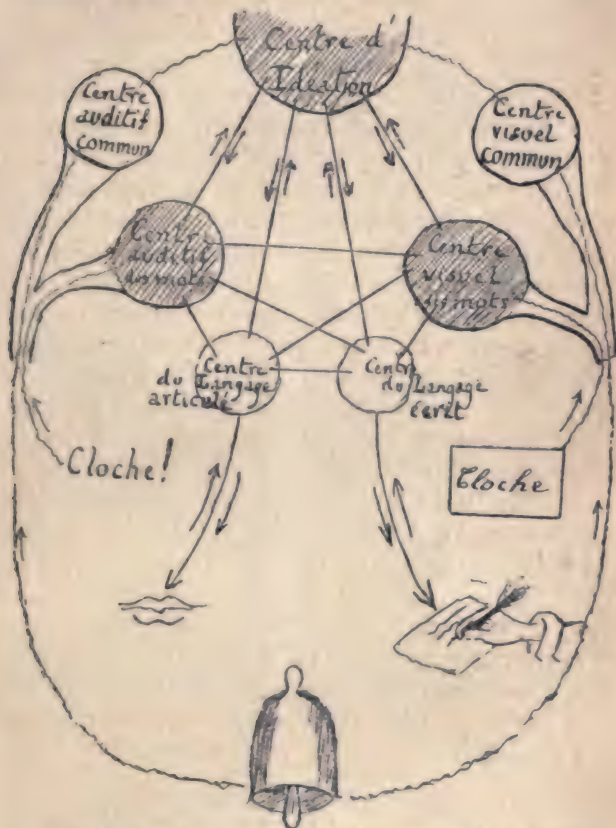 Centre d'
Idéation
Centre
auditif
commun
Centre
visuel
commun
Centre
auditif
des mots
Centre
visuel
des mots
Centre
du Langage
articulé
Centre
du Langage
écrit
Cloche!
Cloche